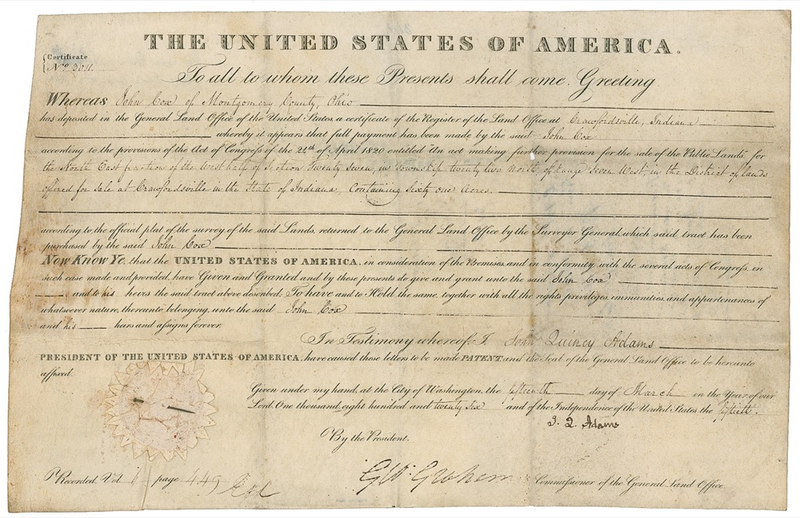 THE UNITED STATES OF AMERICA.
Certificate
No. 3011
To all to whom these Presents shall come, Greeting
Whereas John Cox of Montgomery County, Ohio
has deposited in the General Land Office of the United States, a certificate of the Register of the Land Office at Crawfordsville, Indiana
whereby it appears that full payment has been made by the said John Cox
according to the provisions of the Act of Congress of the 24th of April 1820 entitled An act making further provision for the sale of the Public Lands, for
the North East fraction of the West half of Section Twenty Seven, in Township twenty two North, of Range Seven West, in the District of lands
offered for Sale at Crawfordsville in the State of Indiana, Containing Sixty one Acres.
according to the official plat of the survey of the said Lands, returned to the General Land Office by the Surveyor General, which said tract has been
purchased by the said John Cox
Now Know Ye, that the UNITED STATES OF AMERICA, in consideration of the Premises, and in conformity with the several acts of Congress, in
such case made and provided, have Given and Granted and by these presents do give and grant unto the said John Cox
and to his heirs the said tract above described: To have and to Hold the same, together with all the rights, privileges, immunities, and appurtenances of
whatsoever nature, thereunto belonging, unto the said John Cox
and his heirs and assigns forever.
In Testimony whereof I John Quincy Adams
PRESIDENT OF THE UNITED STATES OF AMERICA, have caused these letters to be made PATENT and the Seal of the General Land Office to be hereunto
affixed.
Given under my hand, at the City of Washington, the fifteenth day of March in the Year of our
Lord One thousand eight hundred and twenty six and of the Independence of the United States the fiftieth.
J. Q. Adams
By the President.
Recorded, Vol. page 449
G W Graham Commissioner of the General Land Office